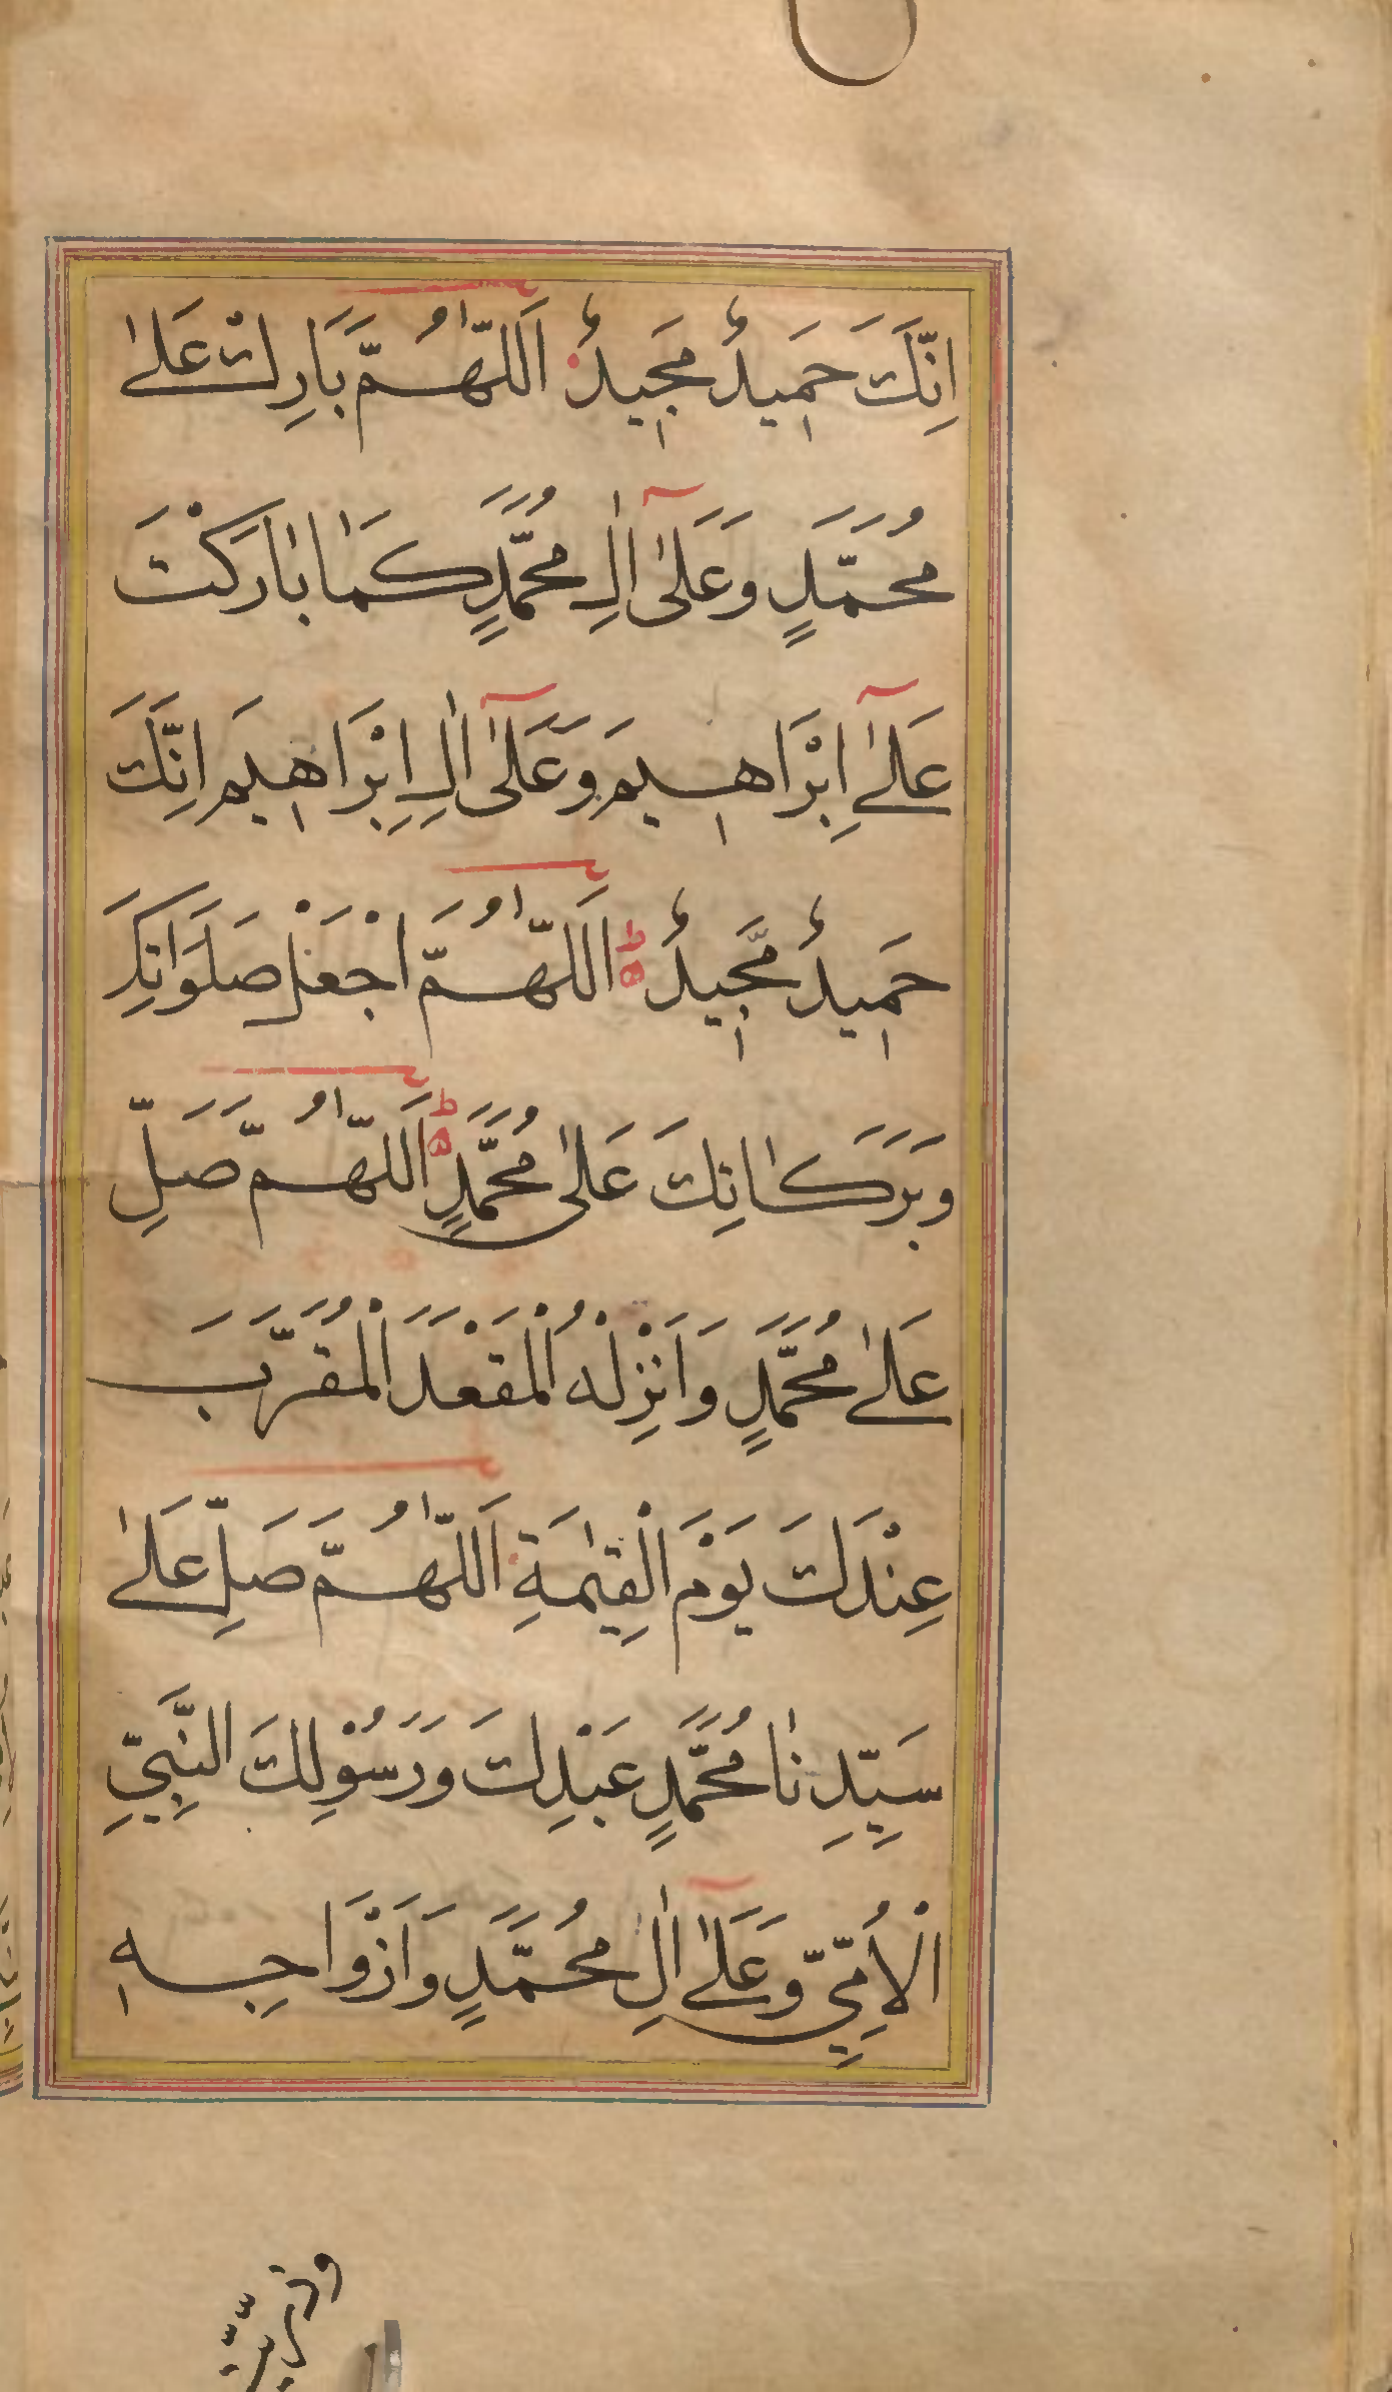 اِنَّكَ حَمِيدٌ مَجِيدٌ اَللّٰهُمَّ بَارِكْ عَلٰى
مُحَمَّدٍ وَعَلٰٓى اٰلِ مُحَمَّدٍ كَمَا بَارَكْتَ
عَلٰٓى اِبْرَاهِيمَ وَعَلٰٓى اٰلِ اِبْرَاهِيمَ اِنَّكَ
حَمِيدٌ مَّجِيدٌ ط ه اَللّٰهُمَّ اجْعَلْ صَلَوَاتِكَ
وَبَرَكَاتِكَ عَلٰى مُحَمَّدٍ ط ه اَللّٰهُمَّ صَلِّ
عَلٰى مُحَمَّدٍ وَاَنْزِلْهُ الْمَقْعَدَ الْمُقَرَّبَ
عِنْدَكَ يَوْمَ الْقِيٰمَةِ اَللّٰهُمَّ صَلِّ عَلٰى
سَيِّدِنَا مُحَمَّدٍ عَبْدِكَ وَرَسُوْلِكَ النَّبِيِّ
الْاُمِّيِّ وَعَلٰى اٰلِ مُحَمَّدٍ وَاَزْوَاجِهٖ